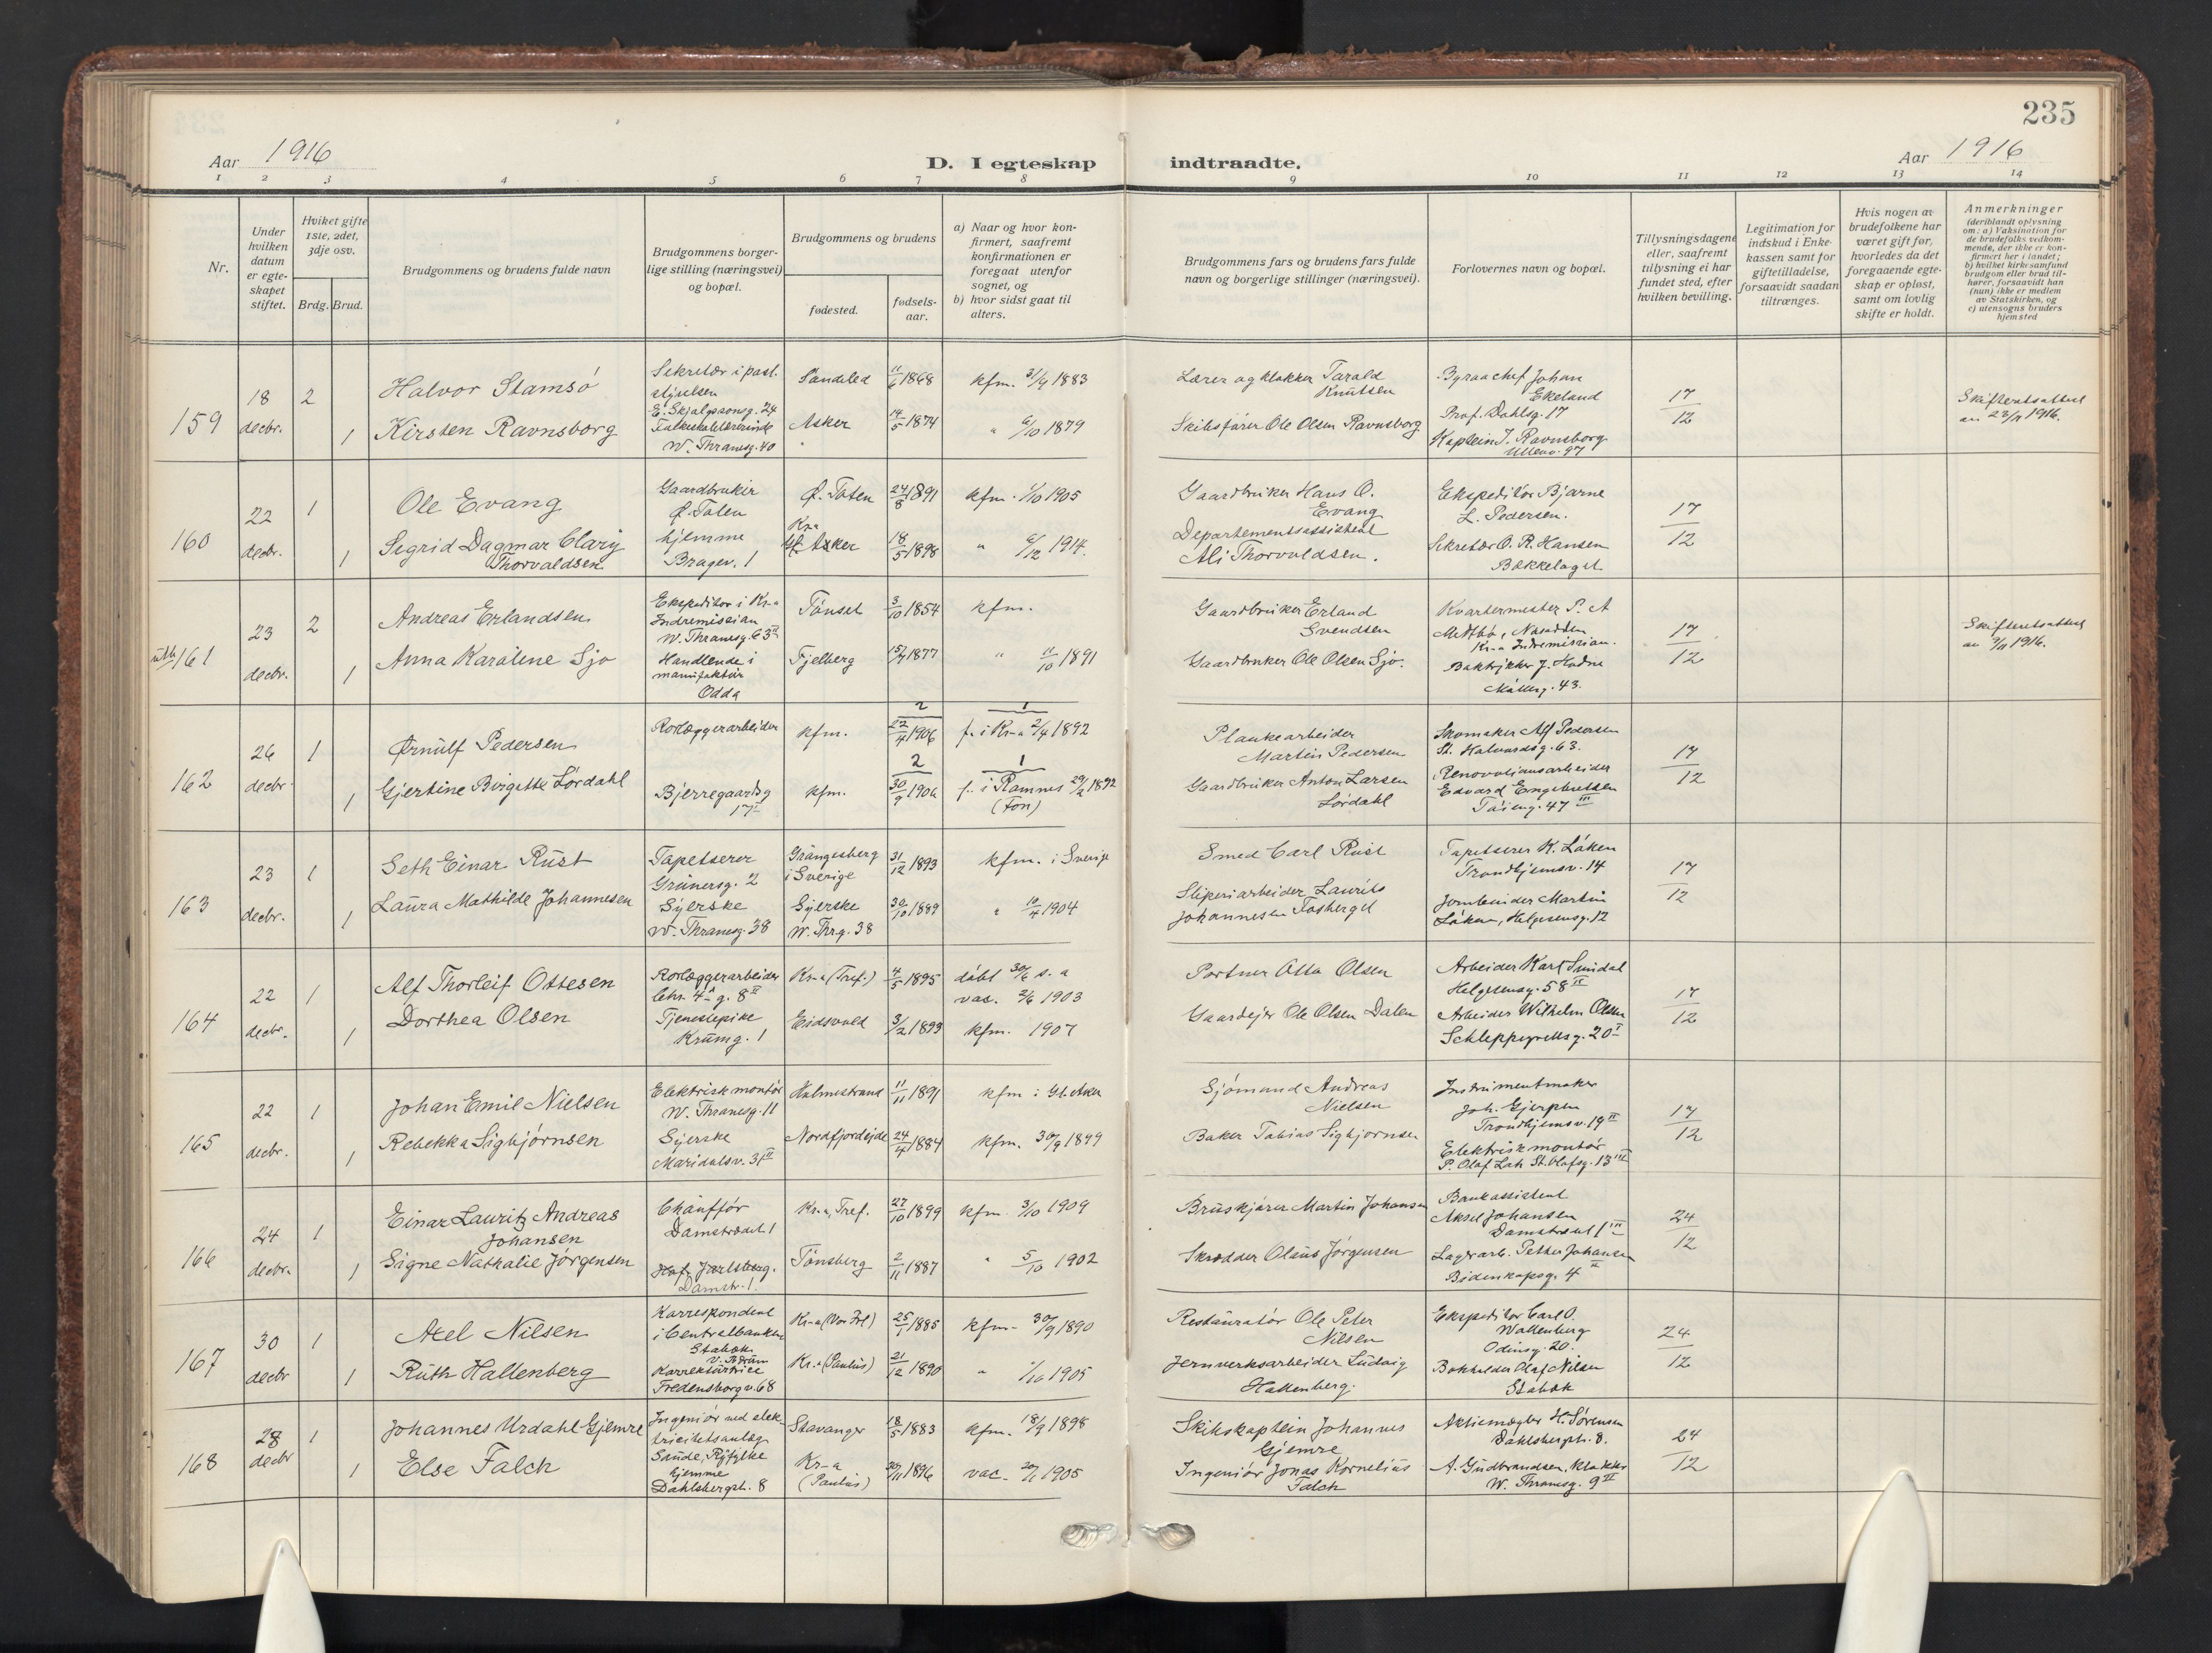 235
Aar 1916
D. I egteskap indtraadte.
Aar 1916
1 2 3 4 5 6 7 8 9 10 11 12 13 14
Nr.
Under hvilken datum er egte-skapet stiftet.
Hviket gifte 1ste, 2det, 3dje osv.
Brdg. Brud.
Brudgommens og brudens fulde navn
Brudgommens borger-lige stilling (næringsvei) og bopæl.
Brudgommens og brudens
fødested.
fødsels-aar.
a) Naar og hvor kon-firmert, saafremt konfirmationen er foregaat utenfor sognet, og
b) hvor sidst gaat til alters.
Brudgommens fars og brudens fars fulde navn og borgerlige stillinger (næringsvei).
Forlovernes navn og bopæl.
Tillysningsdagene eller, saafremt tillysning ei har fundet sted, efter hvilken bevilling.
Legitimation for indskud i Enke-kassen samt for giftetilladelse, forsaavidt saadan tiltrænges.
Hvis nogen av brudefolkene har været gift før, hvorledes da det foregaaende egte-skap er opløst, samt om lovlig skifte er holdt.
Anmerkninger
(deriblandt oplysning om: a) Vaksination for de brudefolks vedkom-mende, der ikke er kon-firmert her i landet; b) hvilket kirkesamfund brudgom eller brud til-hører, forsaavidt han (hun) ikke er medlem av Statskirken, og c) utensogns bruders hjemsted
159
18 decbr.
2
1
Halvor Stamsø
Kirsten Ravnsborg
Sekretær i post-styrelsen
E. Skjalgssonsg. 24
W. Thranesg. 40
Søndeled 11/6 1868 kfm. 3/9 1883
Asker 14/5 1874 " 6/10 1879
Lærer og klokker Tarald Knutsen
Skibsfører Ole Olsen Ravnsborg
Byraachef Johan Ekeland
Prof. Dahlsg. 17
Kaptein J. Ravnsborg
Ullevv. 97
17/12
Skifteretsattest
160
22 decbr.
1
1
Ole Evang
Sigrid Dagmar Clary Thorvaldsen
Gaardbruker
Ø. Toten
hjemme
Bragev. 1
Ø. Toten 24/8 1891 kfm. 1/10 1905
Kr-a
18/5 1898 " 6/12 1914.
Gaardbruker Hans O. Evang
Departementsassistent
Ali Thorvaldsen.
Ekspeditør Bjarne
L. Pedersen.
Sekretær O. R. Hansen
Bækkelaget
17/12
161
23 decbr.
2
1
Andreas Erlandsen
Anna Karoline Sjo
Ekspeditør i Kr-a
Indremission
W. Thranesg. 63
Handlende i
manufaktur
Odda
Tønset 3/10 1854 kfm.
Fjelberg 15/7 1877 " 11/10 1891
Gaardbruker Erland
Svendsen
Gaardbruker Ole Olsen Sjo.
Kvartermester P. A
Kr-a Indremission.
Møllerg. 43.
17/12
Skifteretsattest
162
26 decbr.
1
1
Ørnulf Pedersen
Gjertine Birgitte Lørdahl
Rørlæggerarbeider
Bjerregaardsg
17
kfm. 2 22/4 1906 1 f. i Kr-a 2/4 1892
kfm. 2 30/9 1906 1 f. i Ramnes 29/2 1892
(Fon)
Plankearbeider
Martin Pedersen
Gaardbruker Anton Larsen
Lørdahl
Skomaker Alf Pedersen
St. Halvardsg. 63.
Renovationsarbeider
Edvard Engebretsen
Tøieng. 47 III
17/12
163
23 decbr.
1
1
Seth Einar Rust
Laura Mathilde Johannesen
Tapetserer
Grünersg. 2
Syerske
W. Thranesg. 38
Grängesberg
i Sverige
31/12 1893 kfm. i Sverige
Syerske
W. Thrg. 38
30/10 1889 " 10/4 1904
Smed Carl Rust
Sliperiarbeider Laurits
Johannesen Fosberget
Tapetserer K. Løken
Trondhjemsv. 14
Martin
Løken, Helgesensg. 12
17/12
164
22 decbr.
1
1
Alf Thorleif Ottesen
Dorthea Olsen
Rørlæggerarbeider
Chr. 4des g. 8 II
Tjenestepike
Krumg. 1
Kr-a (Tref.) 4/5 1895 døbt 30/6 s. a
vac. 2/6 1903
Eidsvold 3/2 1893 kfm. 1907
Portner Otto Olsen
Gaardeier Ole Olsen Dalen
Arbeider Karl Smidal
Helgesensg. 58 II
Arbeider Wilhelm Olsen
Schleppegrellsg. 20 I
17/12
165
22 decbr.
1
1
Johan Emil Nielsen
Rebekka Sigbjørnsen
Elektrisk montør
W. Thranesg. 11
Syerske
Maridalsv. 31 II
Holmestrand 11/11 1891 kfm i Gl. Aker
Nordfjordeide 24/4 1884 kfm. 30/9 1899
Sjømand Andreas
Nielsen
Baker Tobias Sigbjørnsen
Instrumentmaker
Joh. Gjerpen
Trondhjemsv. 19 II
Elektrisk montør
P. Olaf Lah St. Olafsg. 13 III
17/12
166
24 decbr.
1
1
Einar Lauritz Andreas
Johansen
Signe Nathalie Jørgensen
Chauffør
Damstrædet 1
Hof, Jarlsberg.
Damstr. 1.
Kr-a, Tref. 27/10 1899 kfm. 3/10 1909
Tønsberg 2/11 1887 " 5/10 1902
Bruskjører Martin Johansen
Skrædder Olaus Jørgensen
Bankassistent
Aksel Johansen
Damstrædet 1 III
Lagerarb. Petter Johansen
Bidenkapsg. 4 II
24/12
167
30 decbr
1
1
Axel Nilsen
Ruth Hallenberg
Korrespondent
i Centralbanken
Stabæk
Korrekturtrice
Fredensborgv. 68
Kr-a (Vor Frl) 25/1 1885 kfm. 30/9 1890
Kr-a (Paulus) 21/12 1890 " 1/10 1905
Restauratør Ole Peter
Nilsen
Jernverksarbeider Ludvig
Hallenberg.
Ekspeditør Carl O.
Wallenberg
Odinsg. 20.
Bokholder Olaf Nilsen
Stabæk
24/12
168
28 decbr
1
1
Johannes Urdahl Gjemre
Else Falch
Ingeniør ved elek-
tricitetsanlæg
Saude, Ryfylke
hjemme
Dahlsbergst. 8
Stavanger 18/5 1883 kfm. 18/9 1898
Kr-a
(Paulus)
30/11 1896 vac. 20/11 1905
Skibskaptein Johannes
Gjemre
Ingeniør Jonas Kornelius
Falch
Aktiemægler H. Sørensen
Dahlsbergst. 8.
A. Gudbrandsen, klokker
W. Thranesg. 9 II
24/12